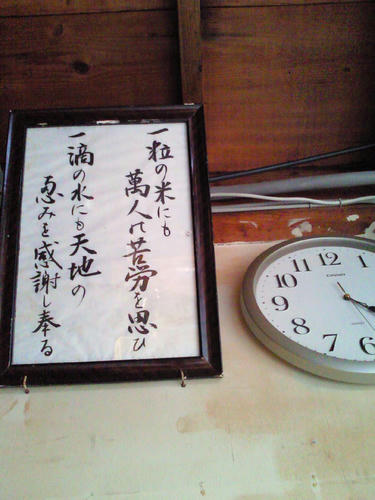 一粒の米にも
萬人の苦労を思ひ
一滴の水にも天地の
恵みを感謝し奉る
11
12
1
10
9
8
7
6
CASIO